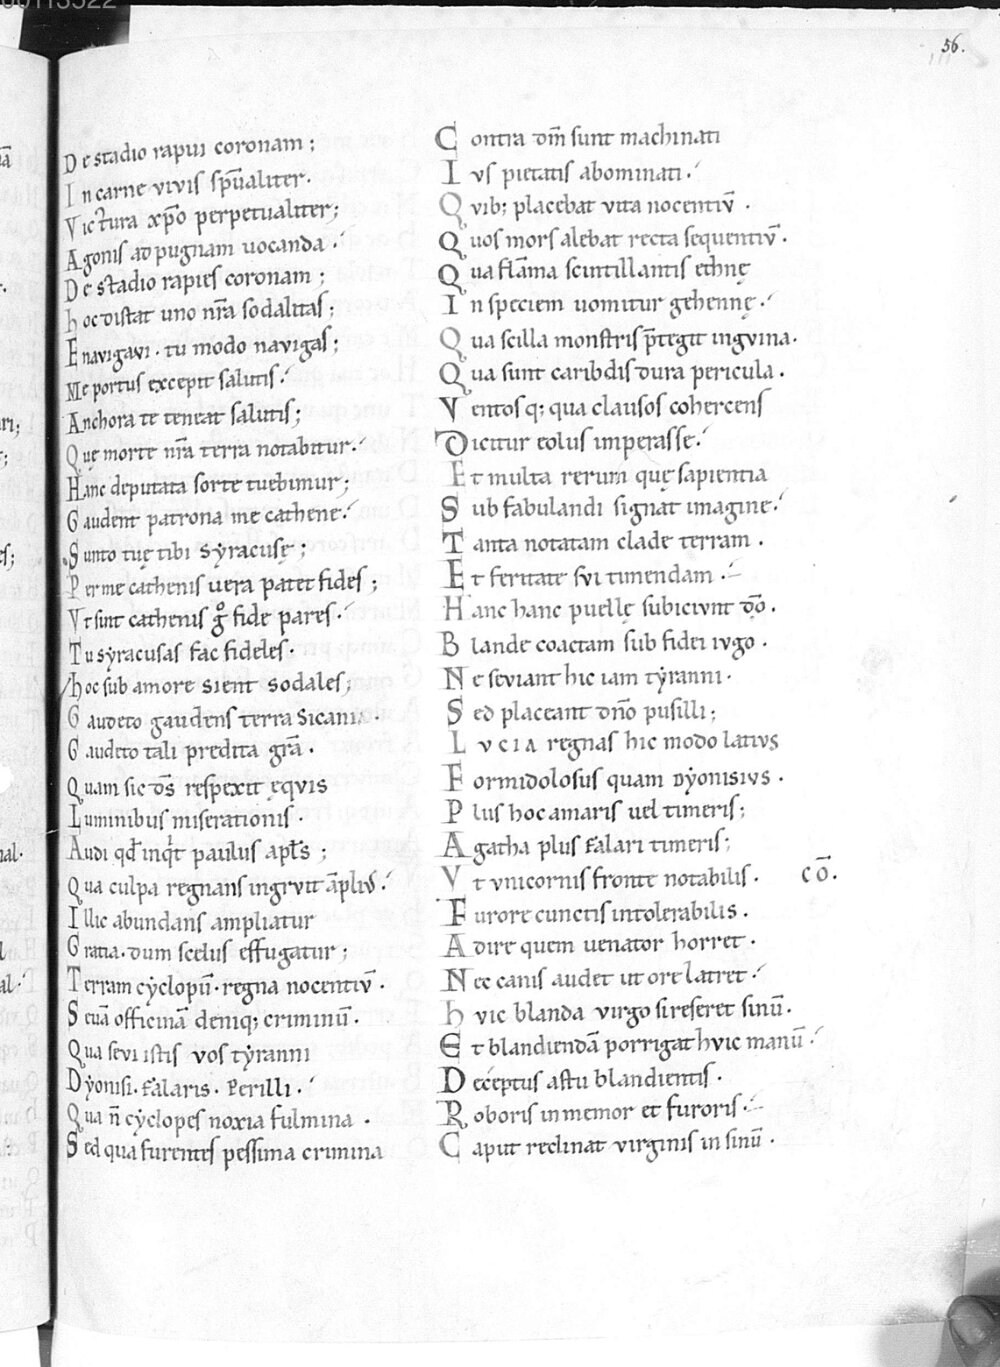 00113522
56.
De stadio rapui coronam;
In carne vivis sp̄ualiter.
Victura xp̄o perpetualiter;
Agonis ad pugnam uocanda.
De stadio rapies coronam;
hoc distat uno nr̄a sodalitas;
Enavigavi. tu modo navigas;
Me portus excepit salutis.
Anchora te teneat salutis;
Quę morte nr̄a terra notabitur.
Hanc deputata sorte tuebimur;
Gaudent patrona me cathene.
Sunto tuę tibi syracusę;
Per me cathenis uera patet fides;
Vt sint cathenis gͦ fide pares.
Tu syracusas fac fideles.
hoc sub amore sient sodales;
Gaudeto gaudens terra sicania.
Gaudeto tali predita grā.
Quam sic ds̄ respexit ęquis
Luminibus miserationis.
Audi qd̄ inq̇t paulus apl̄s;
Qua culpa regnans ingruit āpliđ.
Illic abundans ampliatur
Gratia. dum scelus effugatur;
Terram cyclopū. regna nocentiū.
Seuā officinā deniq; criminū.
Qua sevi istis vos tyranni
Dyonisi. falaris. Perilli.
Qua n̄ cyclopes noxia fulmina.
Sed qua furentes pessima crimina
Contra dm̄ sunt machinati
Ius pietatis abominati.
Quib; placebat vita nocentiū.
Quos mors alebat recta sequentiū.
Qua flāma scintillantis ethnę
In speciem uomitur gehennę.
Qua scilla monstris p̄tegit inguina.
Qua sunt caribdis dura pericula.
Ventosq; qua clausos cohercens
Dicitur eolus imperasse.
Et multa rerum quę sapientia
Sub fabulandi signat imagine.
Tanta notatam clade terram.
Et feritate sui timendam.
Hanc hanc puellę subiciunt dō.
Blande coactam sub fidei iugo.
Ne seviant hic iam tyranni.
Sed placeant dn̄o pusilli;
Lucia regnas hic modo latius
Formidolosus quam dyonisius.
Plus hoc amaris uel timeris;
Agatha plus falari timeris;
Vt unicornis fronte notabilis. cō.
Furore cunctis intolerabilis.
Adire quem uenator horret.
Nec canis audet ut ore latret.
huic blanda virgo si reseret sinū.
Et blandiendā porrigat huic manū.
Deceptus astu blandientis.
Roboris inmemor et furoris.
Caput reclinat virginis in sinū.